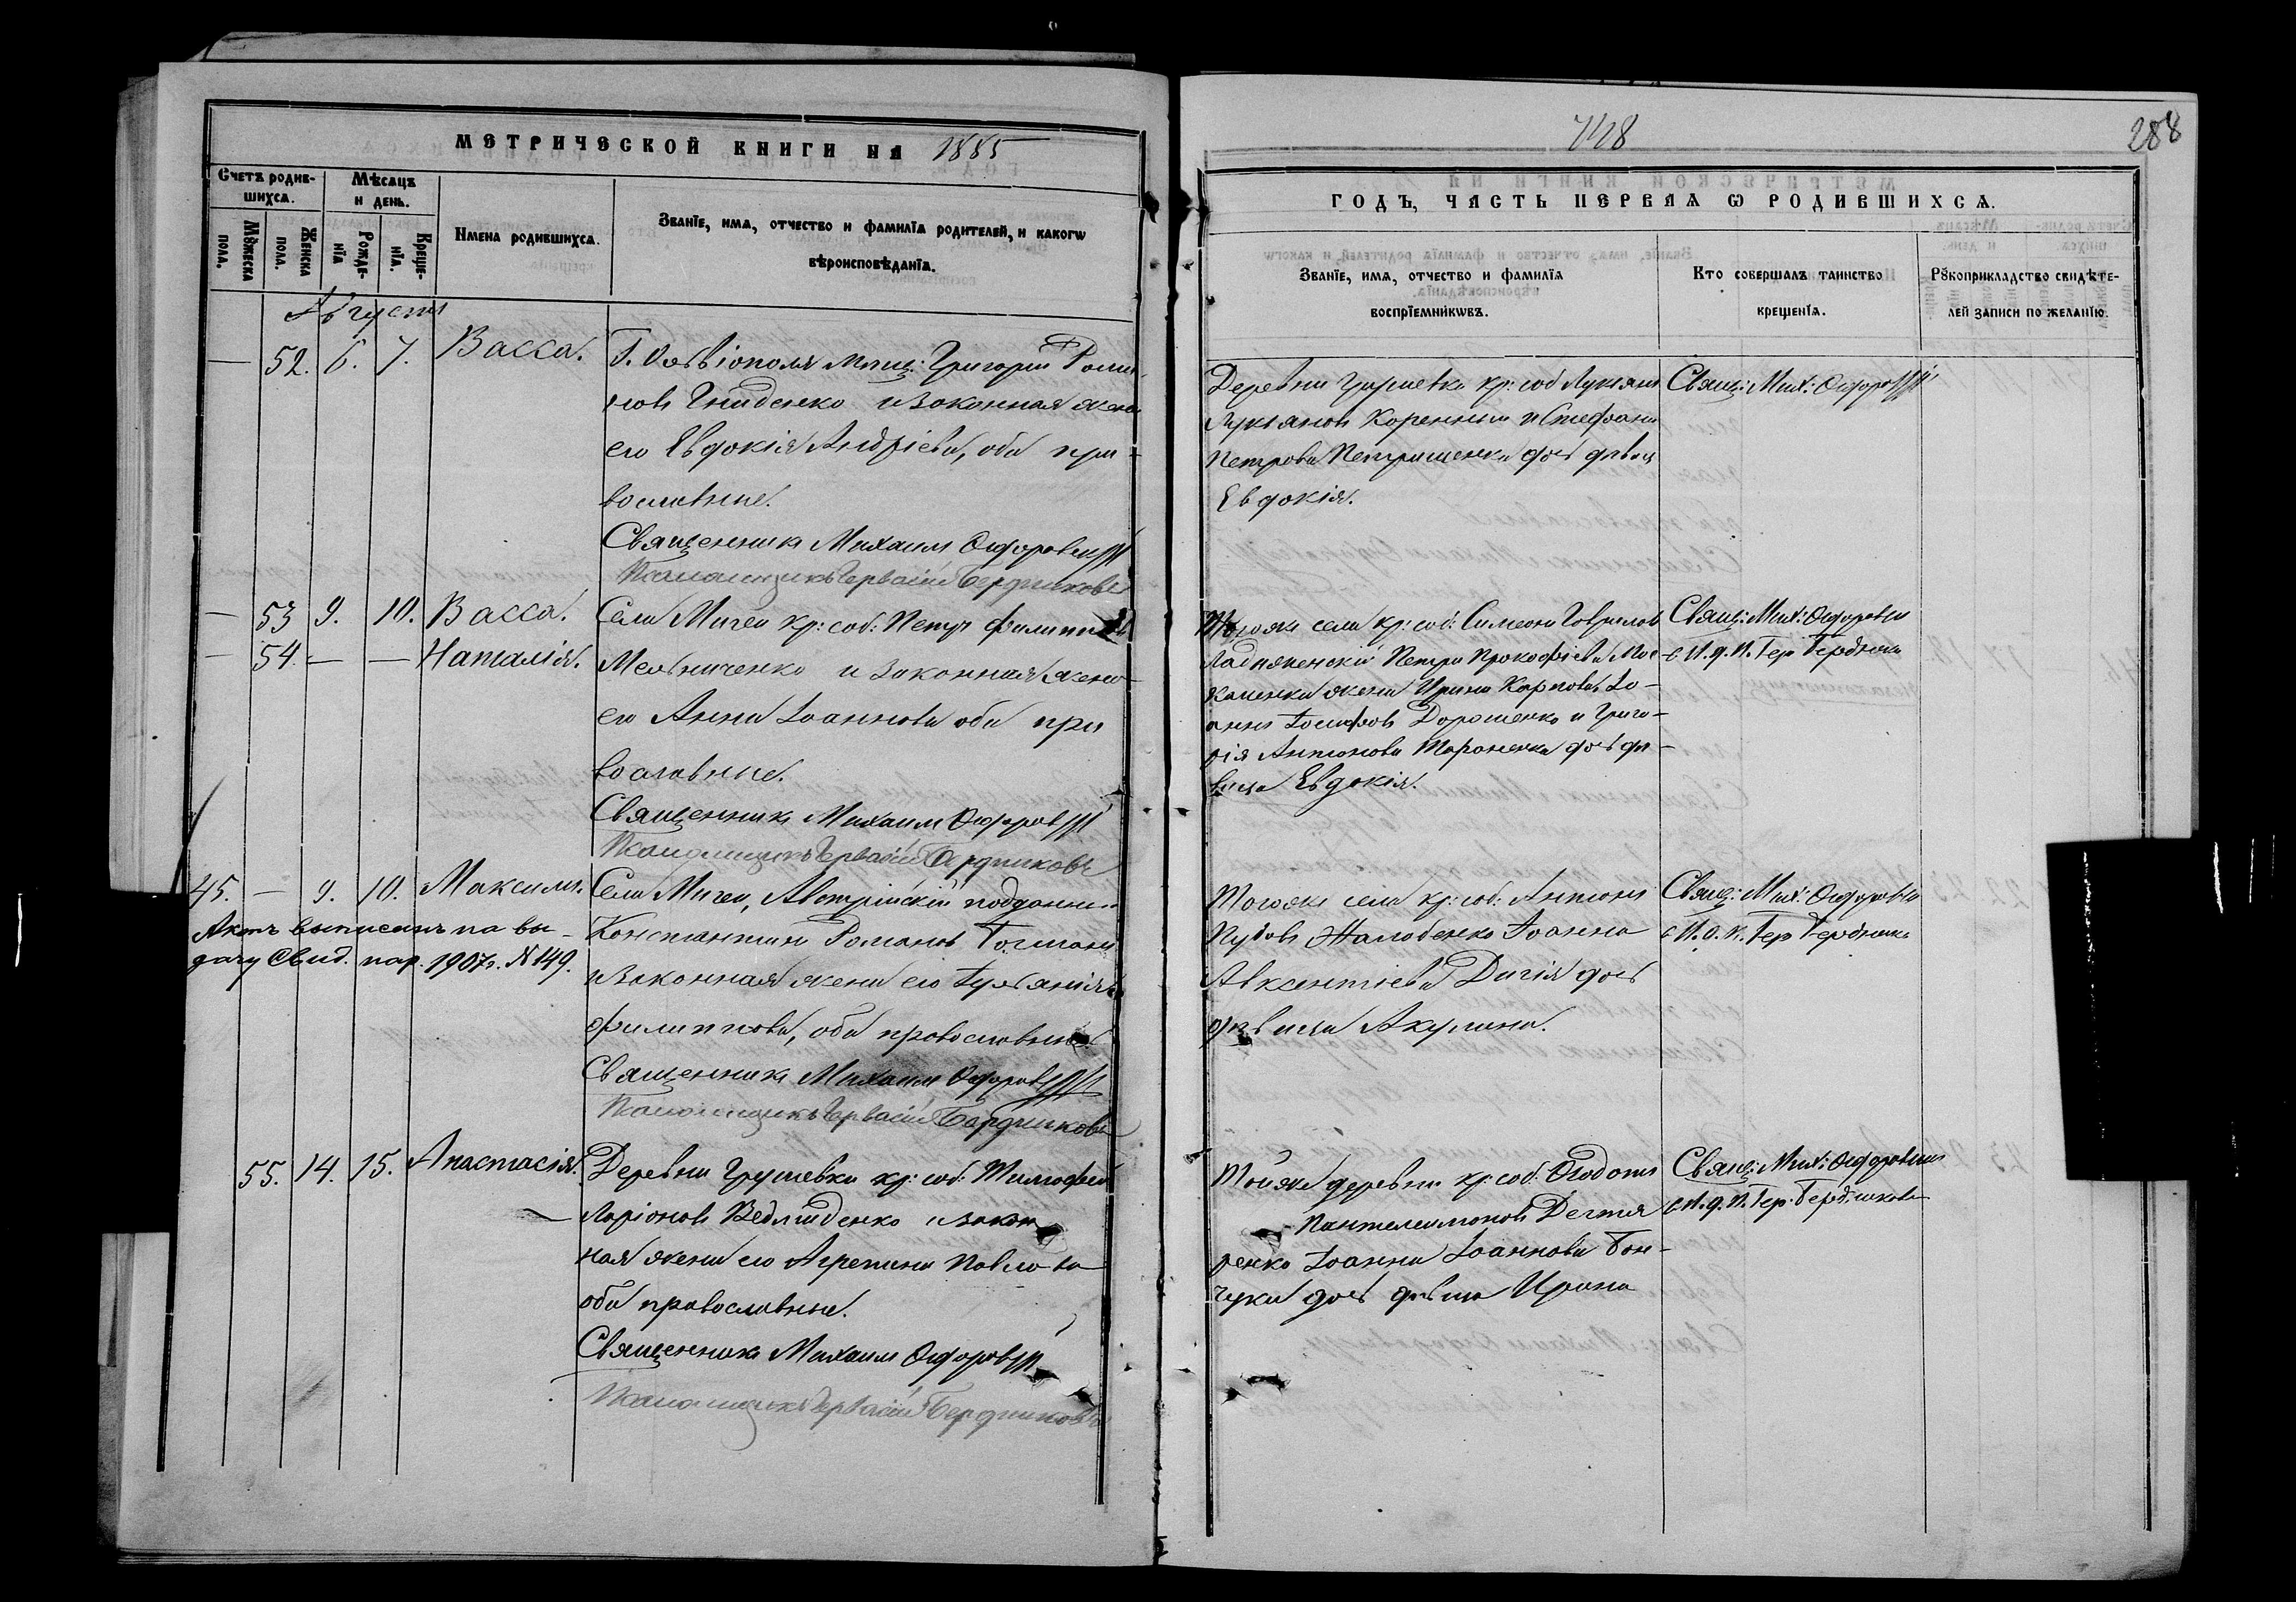 МЕТРИЧЕСКОЙ КНИГИ НА 1885
Счетъ родившихся.
Мѣсяцъ и день.
Мужеска пола.
Женска пола.
Рожденія
Крещенія.
Имена родившихся.
Званіе, имя, отчество и фамилія родителей, и какогѡ
вѣроисповѣданія.
Августъ
— 52. 6. 7. Васса.
Г. Ольвіополя мѣщ: Григорій Рома-
новъ Гниденко и законная жена
его Евдокія Андріева, оба пра-
вославные.
Священникъ Михаилъ
Псаломщикъ Гервасій Бердниковъ
— 53 9. 10. Васса.
— 54. — — Наталія.
Села Мигеи кр: соб: Петръ Филипповъ
Мельниченко и законная жена
его Анна Іоаннова оба пра
вославные.
Священникъ Михаилъ
Псаломщикъ Гервасій Бердниковъ
45. — 9. 10. Максимъ.
Актъ выписанъ на вы-
дачу Свид. пар. 1907г. № 149.
Села Мигеи, Австрійскій подданный
Константинъ Романовъ
и законная жена его Іуліанія
Филиппова, оба православные.
Священникъ Михаилъ
Псаломщикъ Гервасій Бердниковъ
55. 14. 15. Анастасія.
Деревни Грушевки кр: соб: Тимофей
Ларіоновъ и закон
ная жена его Агрепина Павлова
оба православные.
Священникъ Михаилъ
Псаломщикъ Гервасій Бердниковъ
748
288
ГОДЪ, ЧАСТЬ ПЕРВАЯ Ѡ РОДИВШИХСЯ.
Званіе, имя, отчество и фамилія
воспріемникѡвъ.
Кто совершалъ таинство
крещенія.
Рукоприкладство свидѣте-
лей записи по желанію.
Деревни Грушевки кр: соб Лукіанъ
Лукіановъ Коренный и Стефана
Петрова Петришенка дочь дѣвица
Евдокія.
Свящ: Мих:
Тогоже села кр: соб: Симеонъ Гавриловъ
Петра Прокофіева Мос-
каленка жена Ирина Карпова, Іо-
аннъ Іосифовъ Дорошенко и Григо-
рія Антонова Тараненка дочь дѣ-
вица Евдокія.
Свящ: Мих:
с И. д. П. Гер Бердник
Тогоже села кр: соб: Антонъ
Іоанна
Авксентіева дочь
дѣвица Акулина.
Свящ: Мих:
с И. д. П. Гер Бердник
Тойже деревни кр: соб: Ѳедотъ
Пантелеимоновъ Дегтя
ренко Іоанна Іоаннова Бон-
чука дочь дѣвица Ирина
Свящ: Мих:
с И. д. П. Гер. Бердниковъ